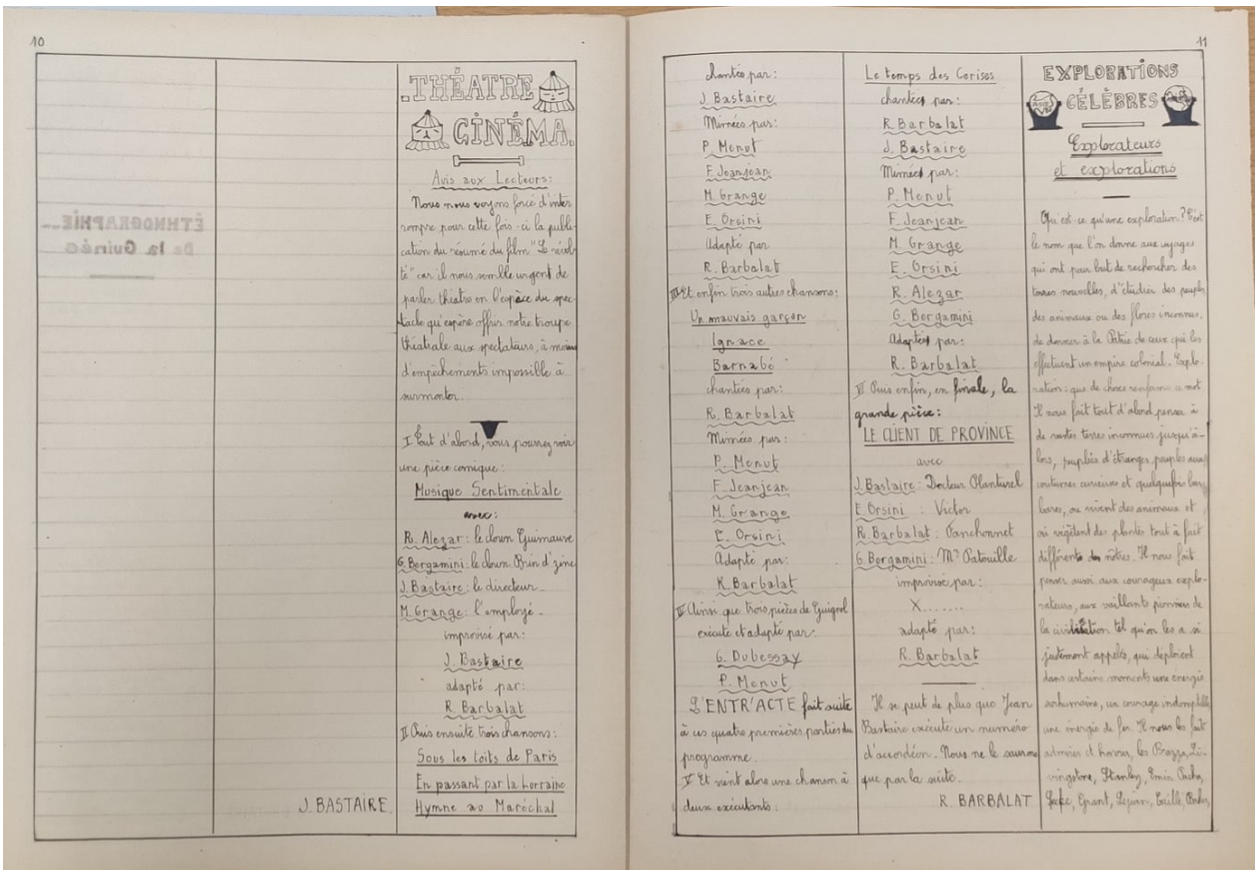 10
J. BASTAIRE.
THÉATRE
CINÉMA.
Avis aux Lecteurs:
Nous nous voyons forcé d'inter
rompre pour cette fois-ci la publi-
cation du résumé du film "Le révol-
té" car il nous semble urgent de
parler théatre en l'espèce du spec-
tacle qu'espère offrir notre troupe
théatrale aux spectateurs, à moins
d'empèchements impossible à
surmonter.
I Tout d'abord, vous pourrez voir
une pièce comique:
Musique Sentimentale
avec:
R. Alezar: le clown Guimauve
G. Bergamini: le clown Brin d'zinc
J. Bastaire: le directeur
M. Grange: l'employé.
improvisé par:
J. Bastaire
adapté par:
R. Barbalat
II Puis ensuite trois chansons:
Sous les toits de Paris
En passant par la Lorraine
Hymne au Maréchal
11
chantés par:
J. Bastaire
Mimées par:
P. Menut
F. Jeanjean
M. Grange
E. Orsini
Adapté par
R. Barbalat
III Et enfin trois autres chansons:
Un mauvais garçon
Ignace
Barnabé
chantées par:
R. Barbalat
Mimées par:
P. Menut
F. Jeanjean
M. Grange
E. Orsini
Adapté par:
R. Barbalat
IV Ainsi que trois pièces de Guignol
exécute et adapté par:
G. Dubessay
P. Menut
L'ENTR'ACTE fait suite
à ces quatre premières parties du
programme.
V Et vient alors une chanson à
deux exécutants:
Le temps des Cerises
chantées par:
R. Barbalat
J. Bastaire
Mimées par:
P. Menut
F. Jeanjean
M. Grange
E. Orsini
R. Alezar
G. Bergamini
Adaptés par:
R. Barbalat
VI Puis enfin, en finale, la
grande pièce:
LE CLIENT DE PROVINCE
avec
J. Bastaire: Docteur Planturel
E. Orsini: Victor
R. Barbalat: Panchonnet
G. Bergamini: Mr Patouille
improvisé par:
X.......
adapté par:
R. Barbalat
Il se peut de plus que Jean
Bastaire exécute un numéro
d'accordéon. Nous ne le saurons
que par la suite.
R. BARBALAT
EXPLORATIONS
CÉLÈBRES
Explorateurs
et explorations
Qu'est-ce qu'une exploration? C'est
le nom que l'on donne aux voyages
qui ont pour but de rechercher des
terres nouvelles, d'étudier des peuples
des animaux ou des flores inconnus,
de donner à la Patrie de ceux qui les
effectuent un empire colonial. Explo-
ration: que de choses renferme ce mot
Il nous fait tout d'abord penser à
de vastes terres inconnues jusqu'a-
lors, peuplées d'étranges peuples aux
coutumes curieuses et quelquefois bar-
bares, ou vivent des animaux et
où végètent des plantes tout à fait
différents des nôtres. Il nous fait
penser aussi aux courageux explo-
rateurs, aux vaillants pionniers de
la civilisation tel qu'on les a si
justement appelés, qui deploient
dans certains moments une énergie
surhumaine, un courage indomptable
une énergie de fer. Il nous les fait
admirer et honorer, les Brazza, Li-
vingstone, Stanley, Emin Pacha,
Grant, Caillé,